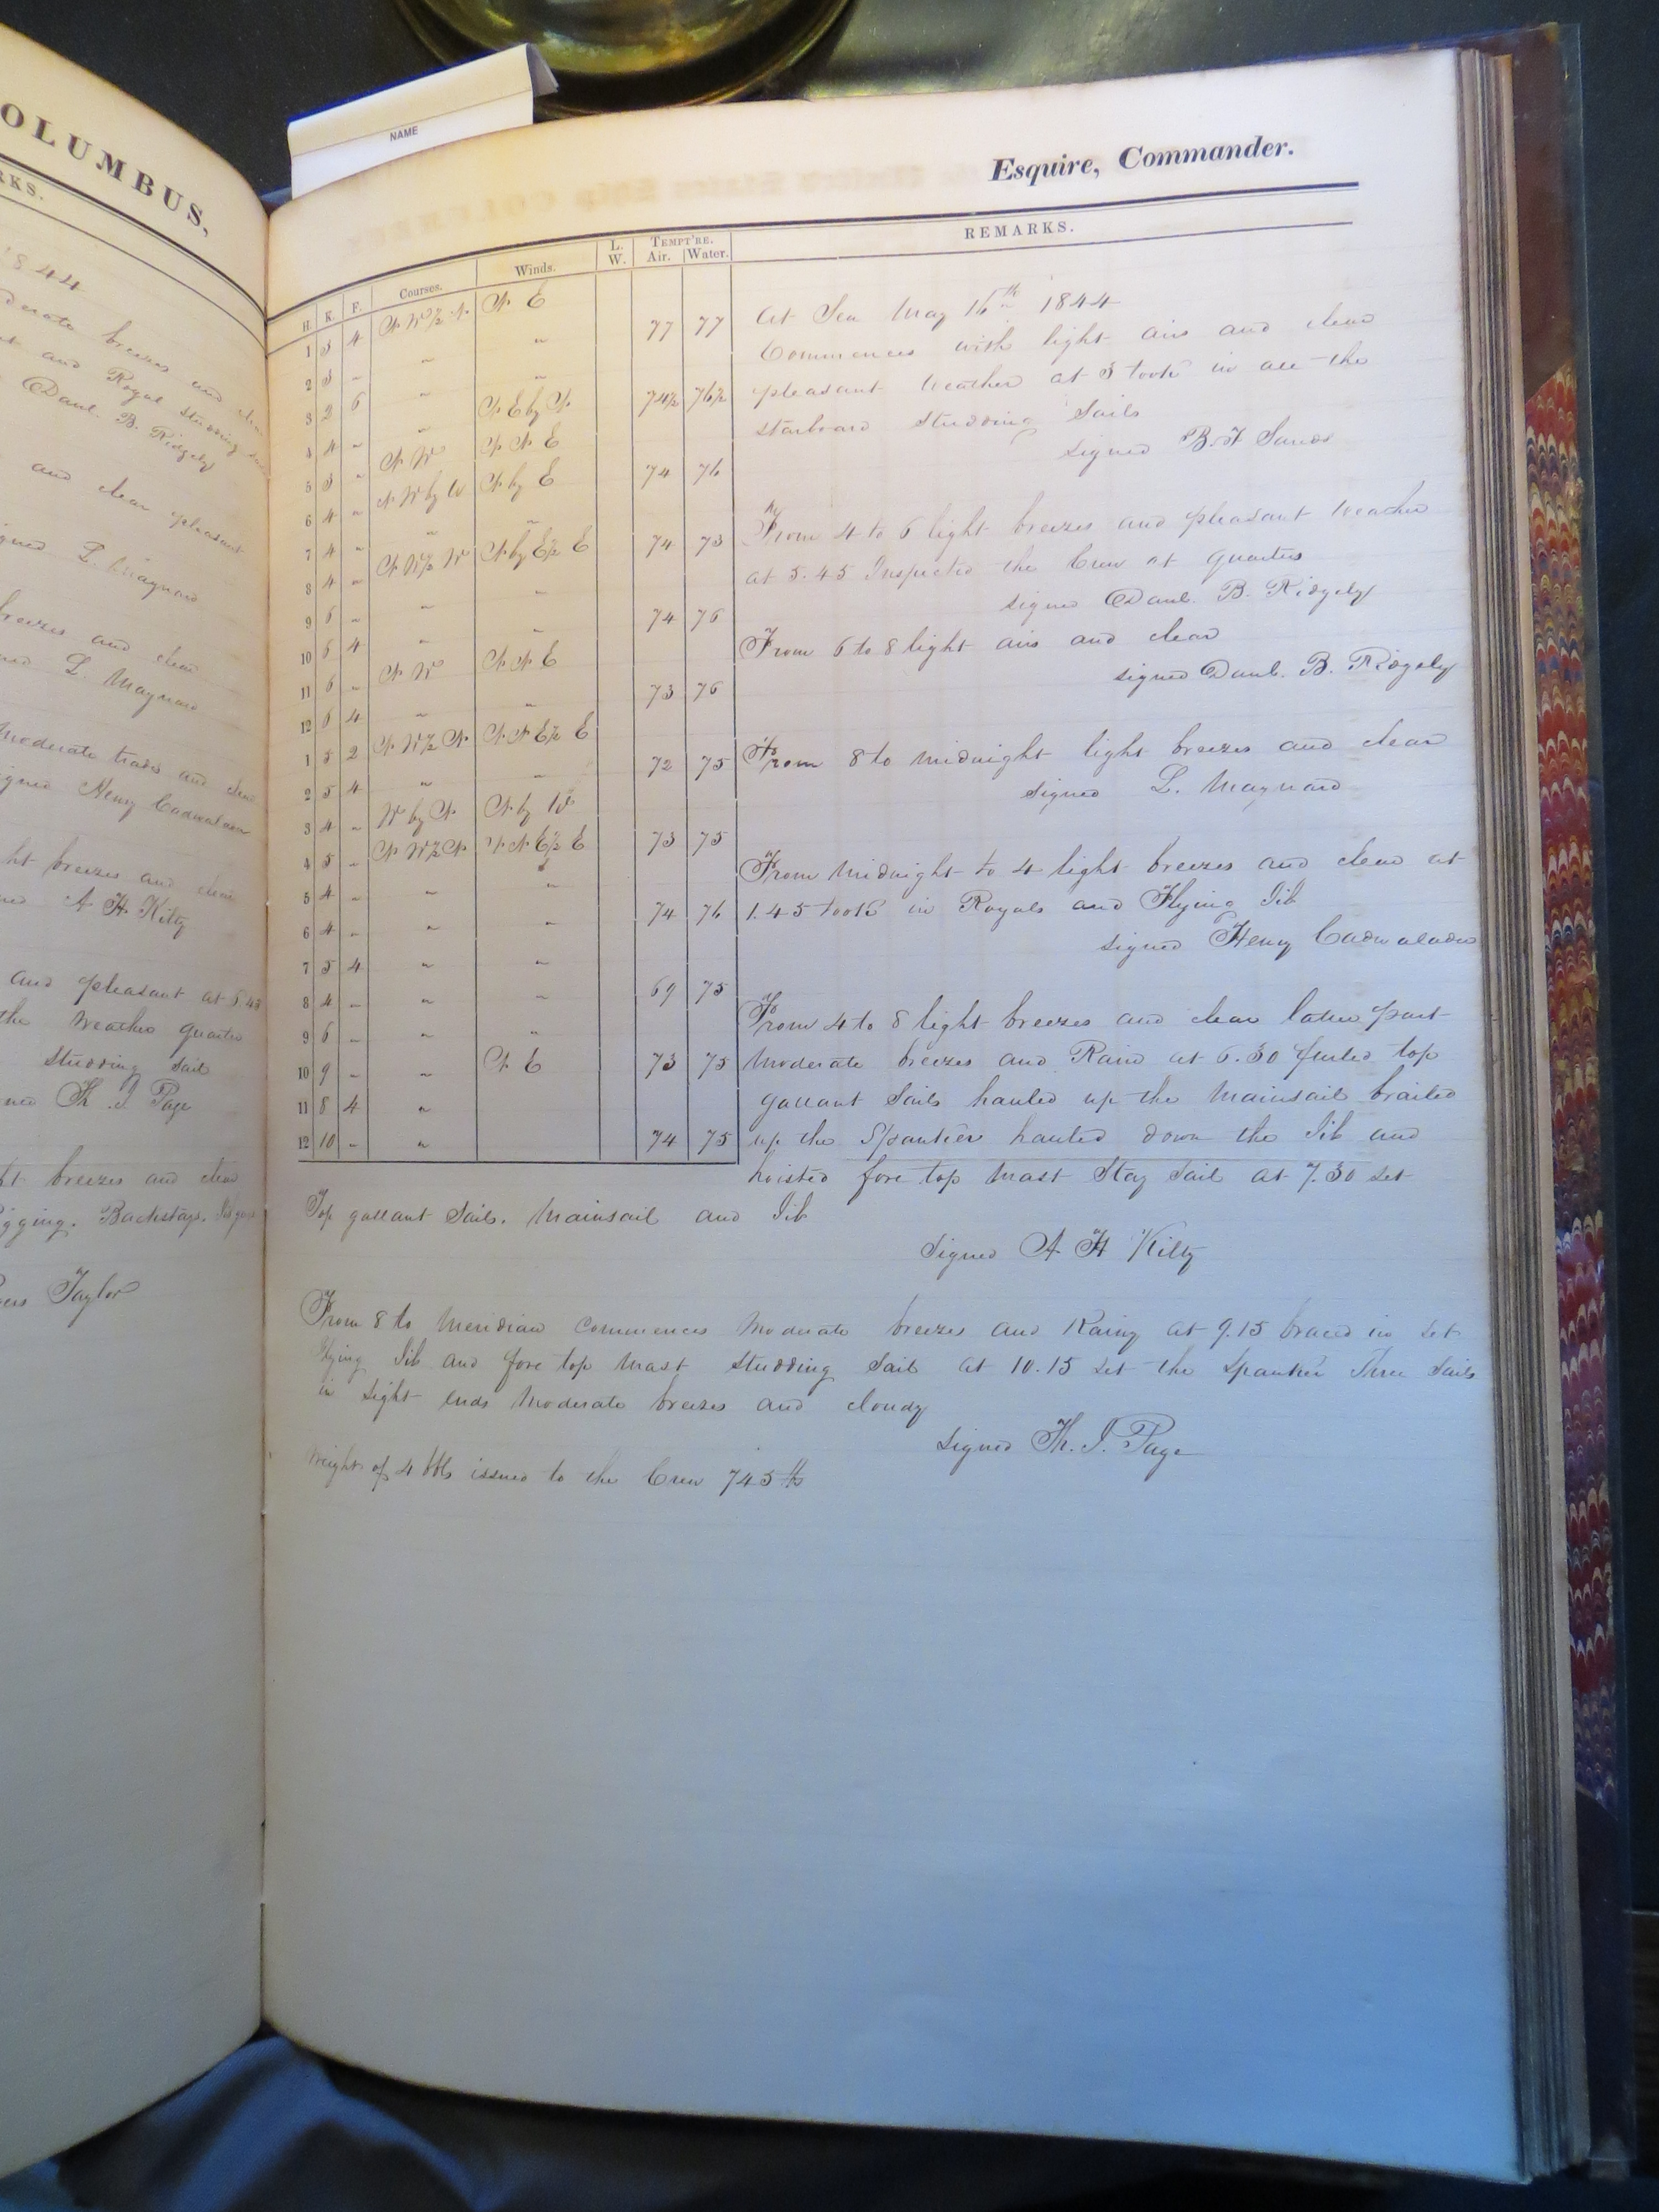 OLUMBUS,
RKS.
1844
derate breezes and clear
and Royal studding
Danl. B. Ridgely
and clear pleasant
L. Maynard
breezes and clear
L. Maynard
Moderate trades and clear
signed Henry Cadwalader
ht breezes and clear
A H Kilty
and pleasant at 5.45
the Weather quarter
studding sail
Th. J. Page
ht breezes and clear
igging. Backstays.
Taylor
NAME
Esquire, Commander.
H. K. F. Courses. Winds. L. W. TEMPT'RE. Air. Water. REMARKS.
1 3 4 N W ½ N N E 77 77
2 3 " " "
3 2 6 " " 74½ 76½
4 4 " " N E by N
5 3 " N W N N E 74 76
6 4 " N W by W N by E
7 4 " " " 74 73
8 4 " N W ½ W N by E ½ E
9 6 " " " 74 76
10 6 4 " "
11 6 " N W N N E 73 76
12 6 4 " "
1 5 2 N W ½ N N N E ½ E 72 75
2 5 4 " "
3 4 " W by N N by W 73 75
4 5 " N W ½ N N N E ½ E
5 4 " " " 74 76
6 4 " " "
7 5 4 " " 69 75
8 4 " " "
9 6 " " " 73 75
10 9 " " N E
11 8 4 "
12 10 " " 74 75
At Sea May 16th 1844
Commences with light airs and clear
pleasant weather at 3 took in all the
starboard studding Sails
signed B. F Sands
From 4 to 6 light breezes and pleasant weather
at 5.45 Inspected the Crew at quarters
signed Danl. B. Ridgely
From 6 to 8 light airs and clear
signed Danl. B. Ridgely
From 8 to midnight light breezes and clear
signed L. Maynard
From Midnight to 4 light breezes and clear at
1.45 took in Royals and Flying Jib
signed Henry Cadwalader
From 4 to 8 light breezes and clear latter part
Moderate breezes and Rain at 6.30 furled top
gallant Sails hauled up the Mainsail brailed
up the Spanker hauled down the Jib and
hoisted fore top Mast Stay Sail at 7.30 set
Top gallant Sails. Mainsail and Jib
Signed A H Kilty
From 8 to Meridian Commences Moderate breezes and Rainy at 9.15 braced in set
Flying Jib and fore top Mast Studding Sail at 10.15 set the Spanker Three Sails
in sight ends Moderate breezes and cloudy
signed Th. J. Page
Weight of 4 bbls issued to the Crew 745 lbs